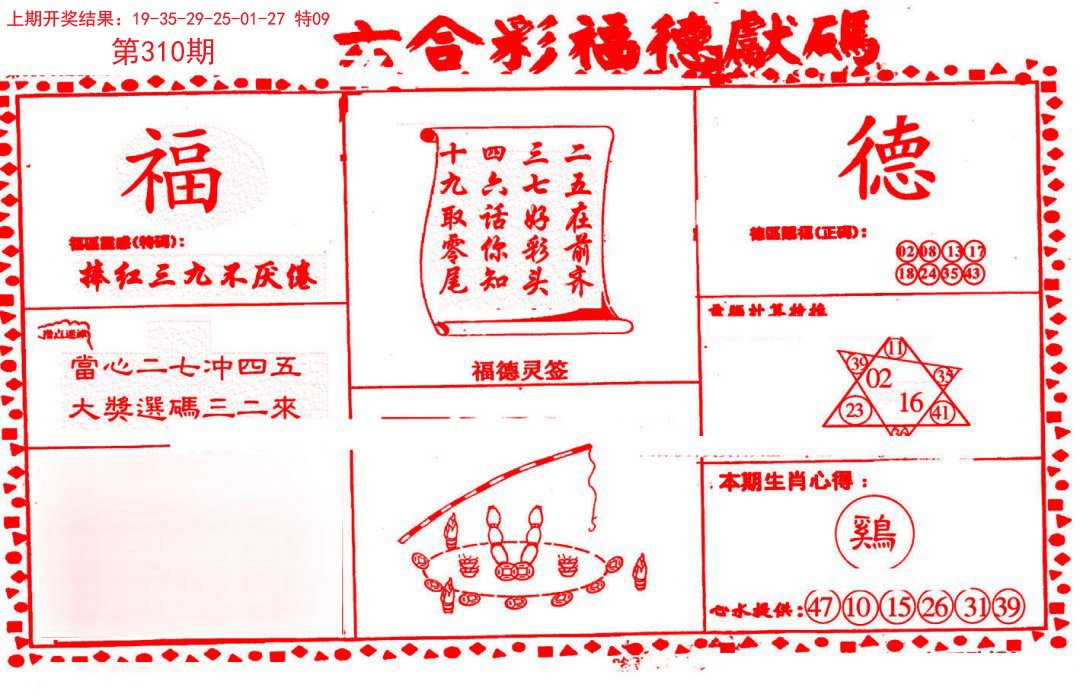 上期开奖结果：19-35-29-25-01-27 特09
第310期
六合彩福德獻碼
福
福區靈感(特码)：
捧红三九不厌倦
二五在前齐
三七好彩头
四六话你知
十九取零尾
福德灵签
德
德區賜福(正码)：
02 08 13 17
18 24 35 43
指点迷津
當心二七冲四五
大獎選碼三二來
11
39
02
35
16
23
41
本期生肖心得：
鷄
心水提供：47 10 15 26 31 39